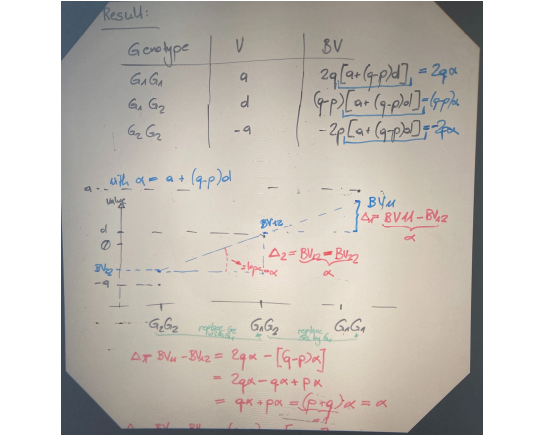 Result:
Genotype V BV
G1G1 a 2q[a+(q-p)d] = 2qα
G1G2 d (q-p)[a+(q-p)d]=(q-p)α
G2G2 -a -2p[a+(q-p)d]=-2pα
with α = a + (q-p)d
a
Value
BV11
BV12
Δ1= BV11-BV12
α
d
0
Δ2= BV12-BV22
α
BV22
slope=α
-a
G2G2 G1G2 G1G1
replace replace
Δ1= BV11-BV12 = 2qα - [(q-p)α]
= 2qα - qα + pα
= qα + pα = (p+q)α = α